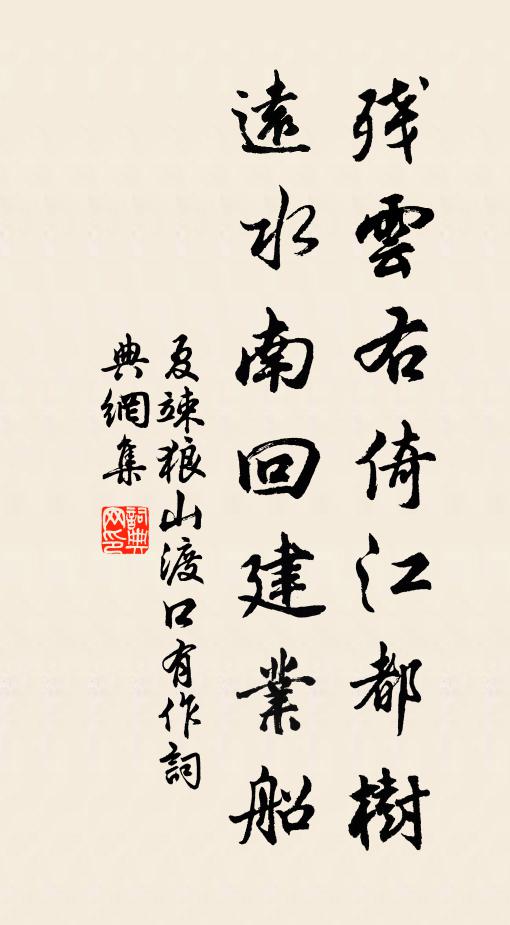 殘雲右倚江都樹
遠水南回建業船
夏竦狼山渡口有作詞
典網集
詞典
网印